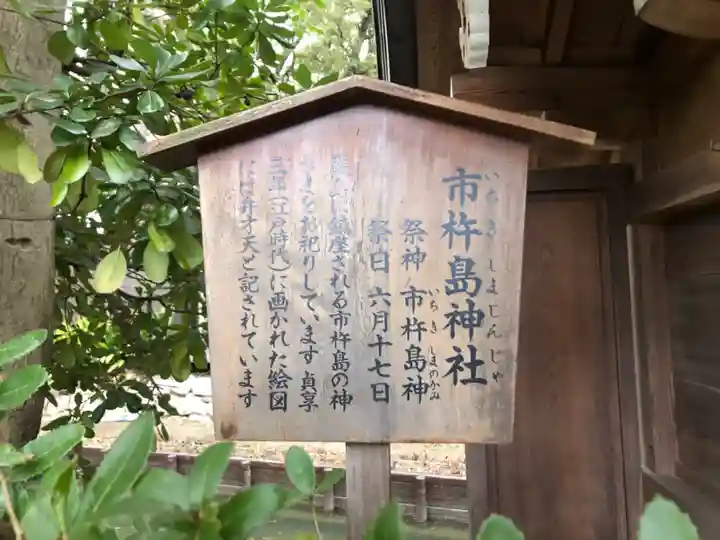 市杵島神社
いちきしまじんじゃ
祭神 市杵島神
いちきしまのかみ
祭日 六月十七日
座される市杵島の神
さまをお祀りしています 貞享
三年(江戸時代)に画かれた絵図
には弁才天と記されています